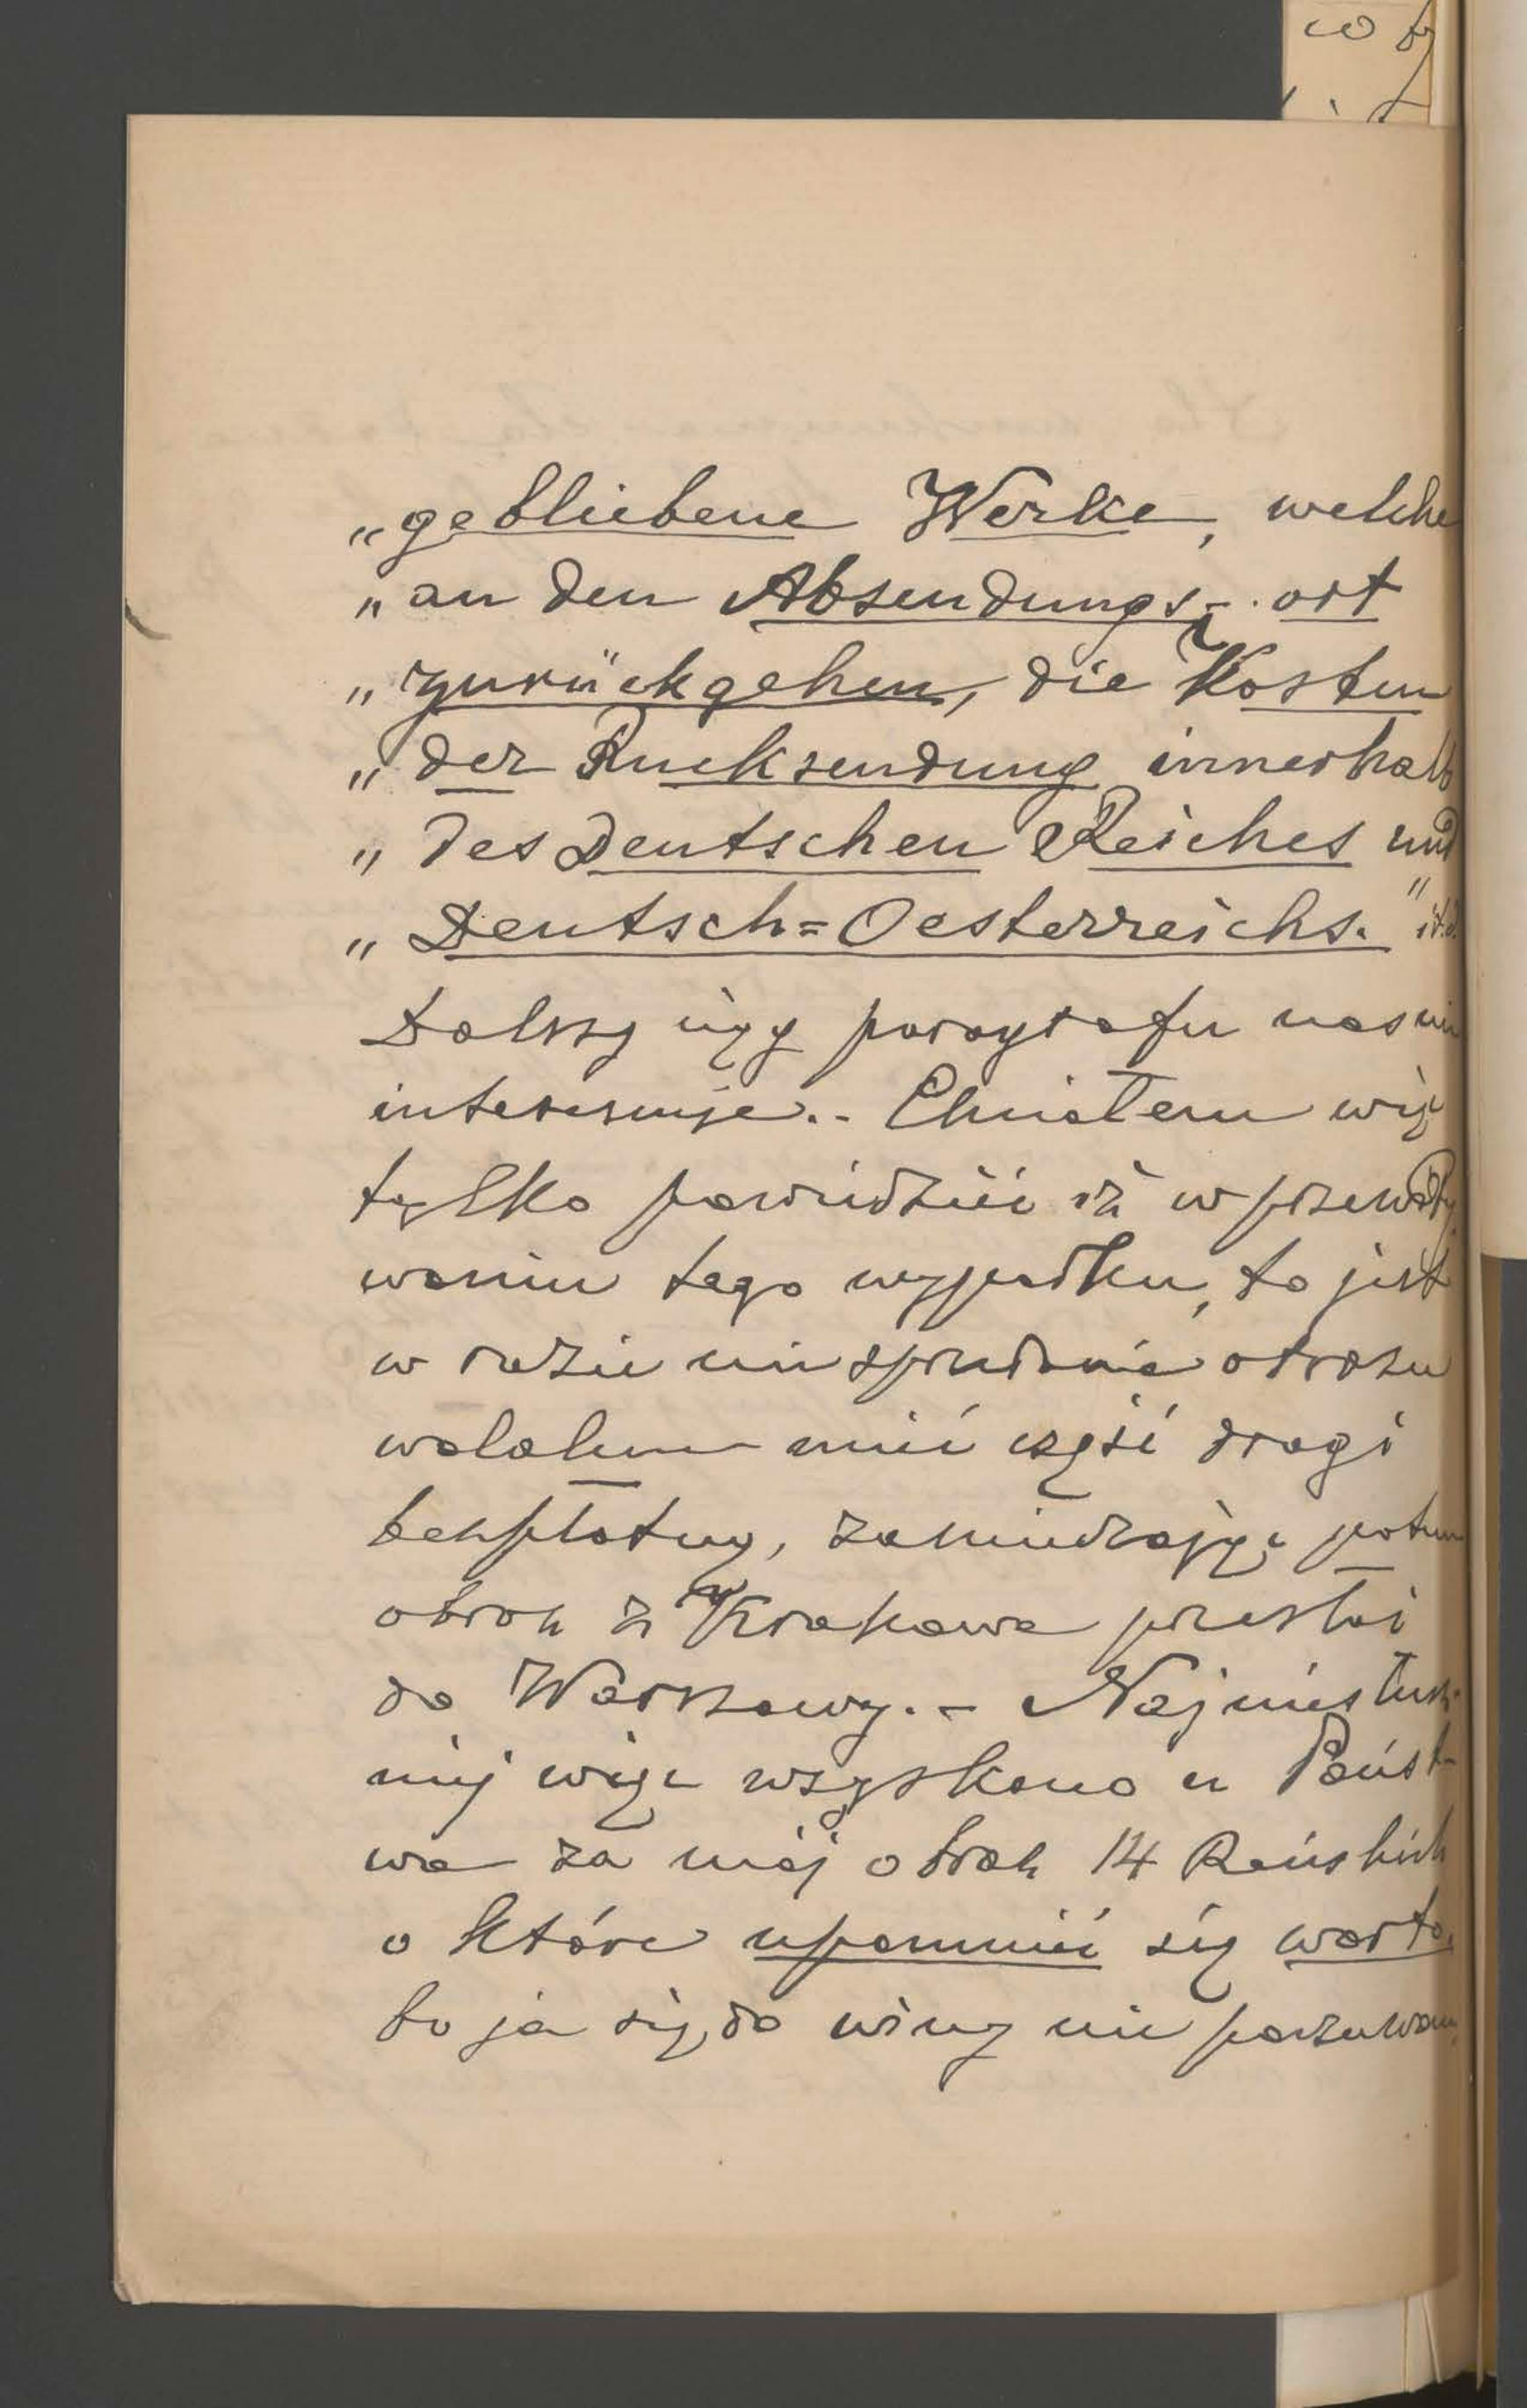 „gebliebene Werke, welche
„an den Absendungs-ort
„zurückgehen, die Kosten
„der Rucksendung innerhalb
„des Deutschen Reiches und
„Deutsch=Oesterreichs." it.d.
Dalszy ciąg paragrafu nas nie
interesuje.- Chciałem więc
tylko powiedzieć iż w przewidy
waniu tego wypadku, to jest
w razie nie sprzedania obrazu
wolałem mieć część drogi
bezpłatną, zamierzając potem
obraz z Krakowa przesłać
do Warszawy.- Najniesłusz-
niej więc wzyskano u Państ-
wa za mój obraz 14 Reńskich
o które upomnieć się warto,
bo ja się do winy nie poczuwam